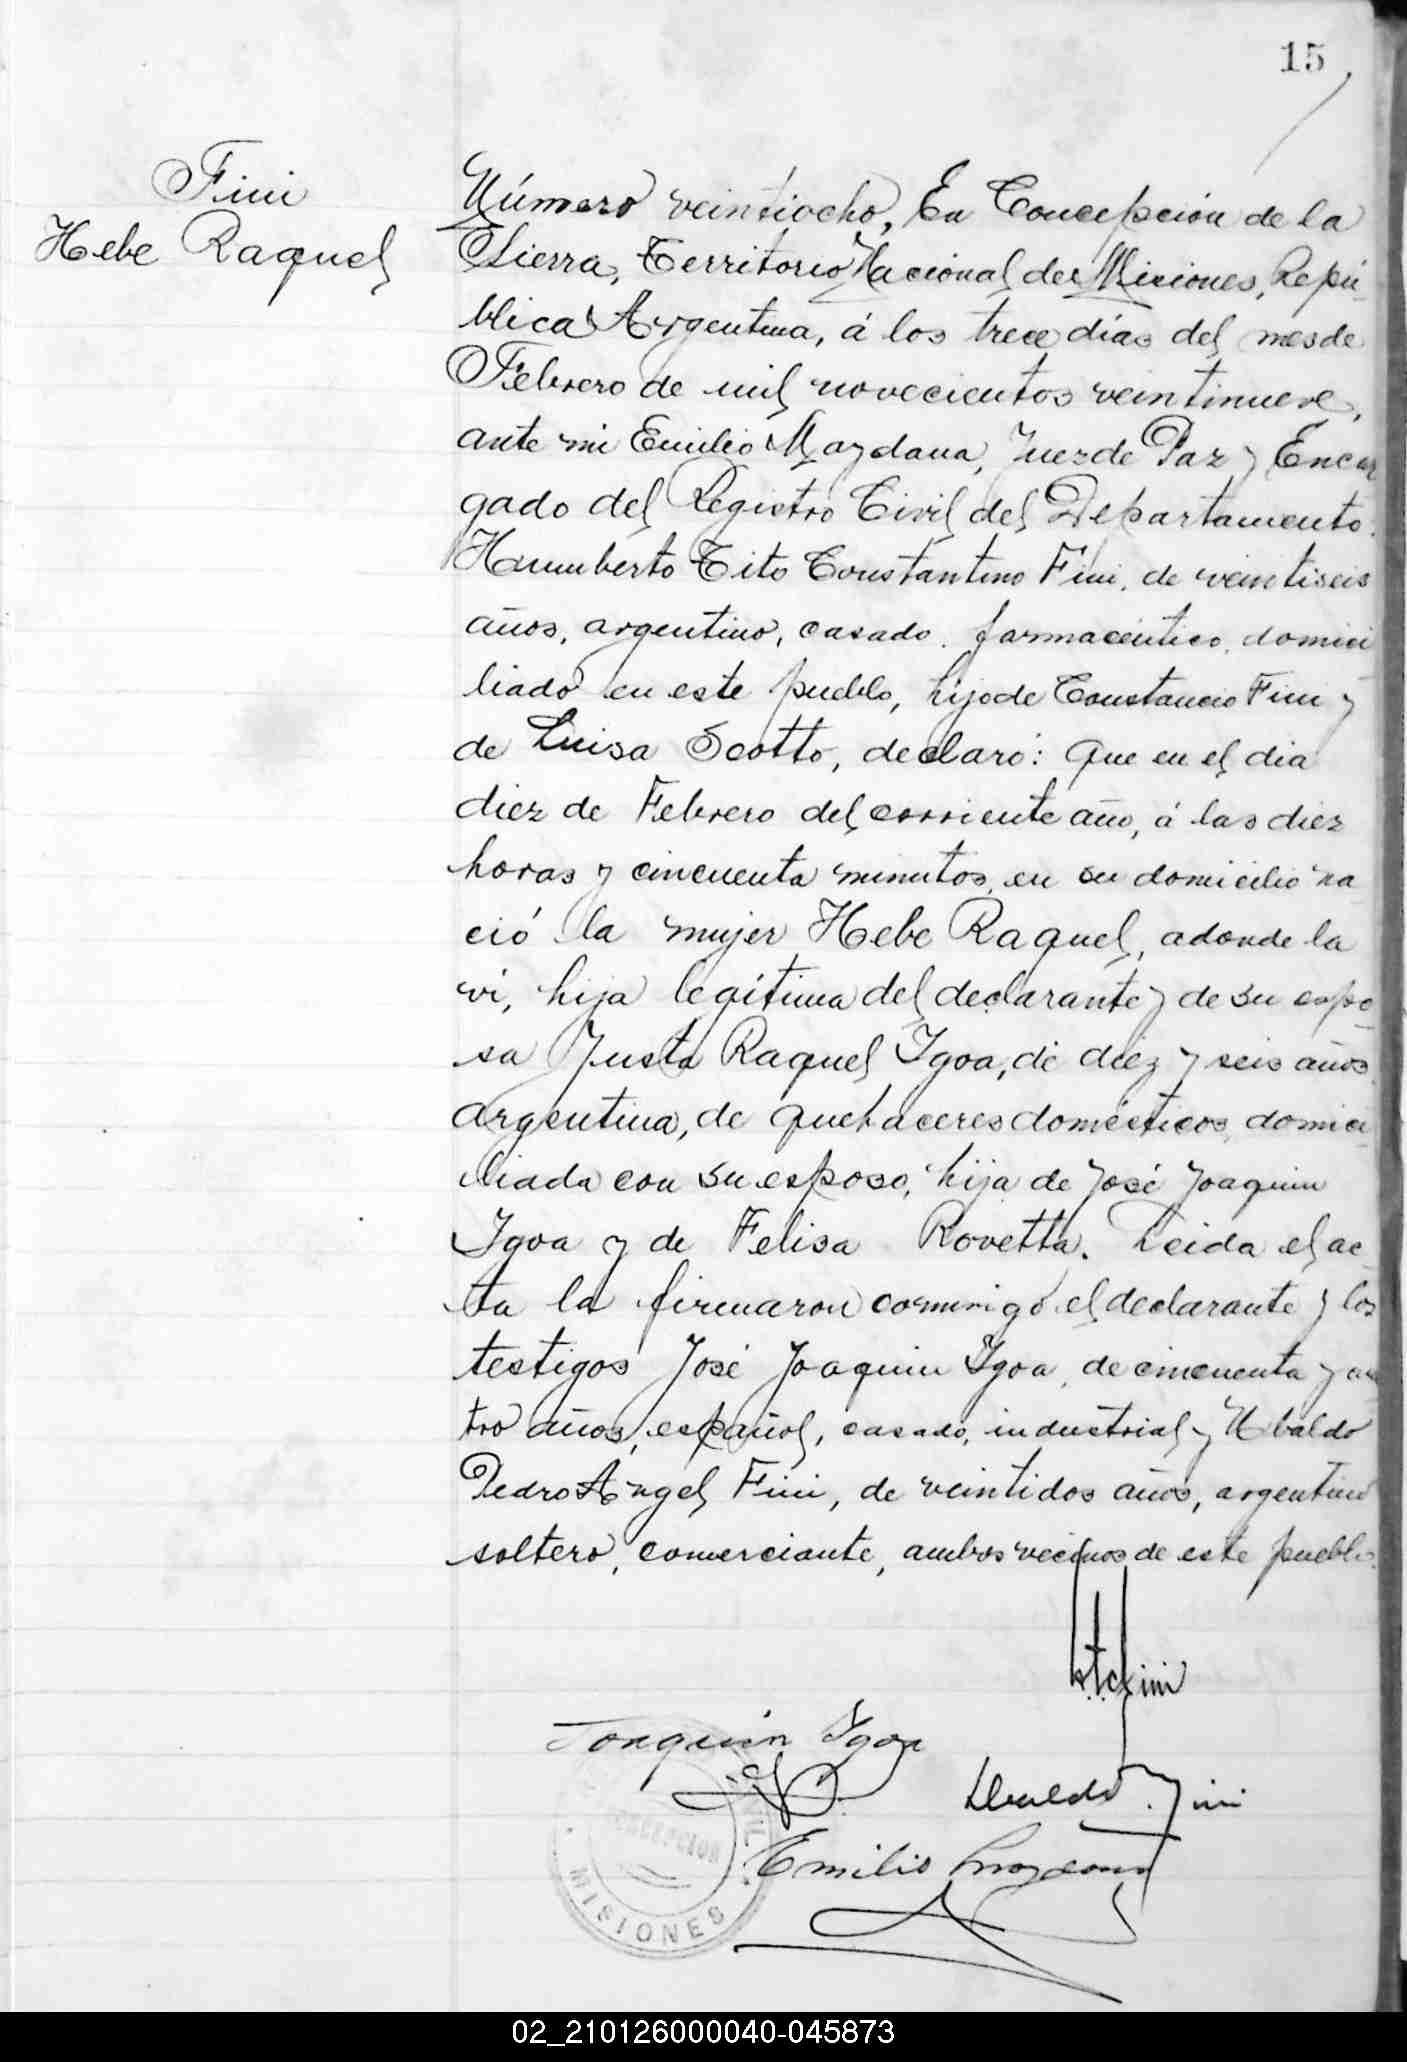 15
Fini
Hebe Raquel
Número veintiocho, En Concepción de la
Sierra, Territorio Nacional de Misiones, Repú-
blica Argentina, á los trece días del mes de
Febrero de mil novecientos veintinueve,
ante mi Emilio Maydana, Juez de Paz y Encar
gado del Registro Civil del Departamento.
Humberto Tito Constantino Fini, de veintiseis
años, argentino, casado, farmacéutico, domici
liado en este pueblo, hijo de Constancio Fini y
de Luisa Scotto, declaró: Que en el dia
diez de Febrero del corriente año, á las diez
horas y cincuenta minutos, en su domicilio na
ció la mujer Hebe Raquel, adonde la
vi, hija legítima del declarante y de su espo
sa Justa Raquel Igoa, de diez y seis años
argentina, de quehaceres domésticos, domici
liada con su esposo, hija de José Joaquin
Igoa y de Felisa Rovetta. Leida el ac-
ta la firmaron conmigo el declarante y los
testigos José Joaquin Igoa, de cincuenta y cua
tro años, español, casado, industrial y Ubaldo
Pedro Angel Fini, de veintidos años, argentino
soltero, comerciante, ambos vecinos de este pueblo.
H.T.C. Fini
Joaquin Igoa
Ubaldo Fini
Emilio Maydana
CIVIL
CONCEPCION
MISIONES
02_210126000040-045873